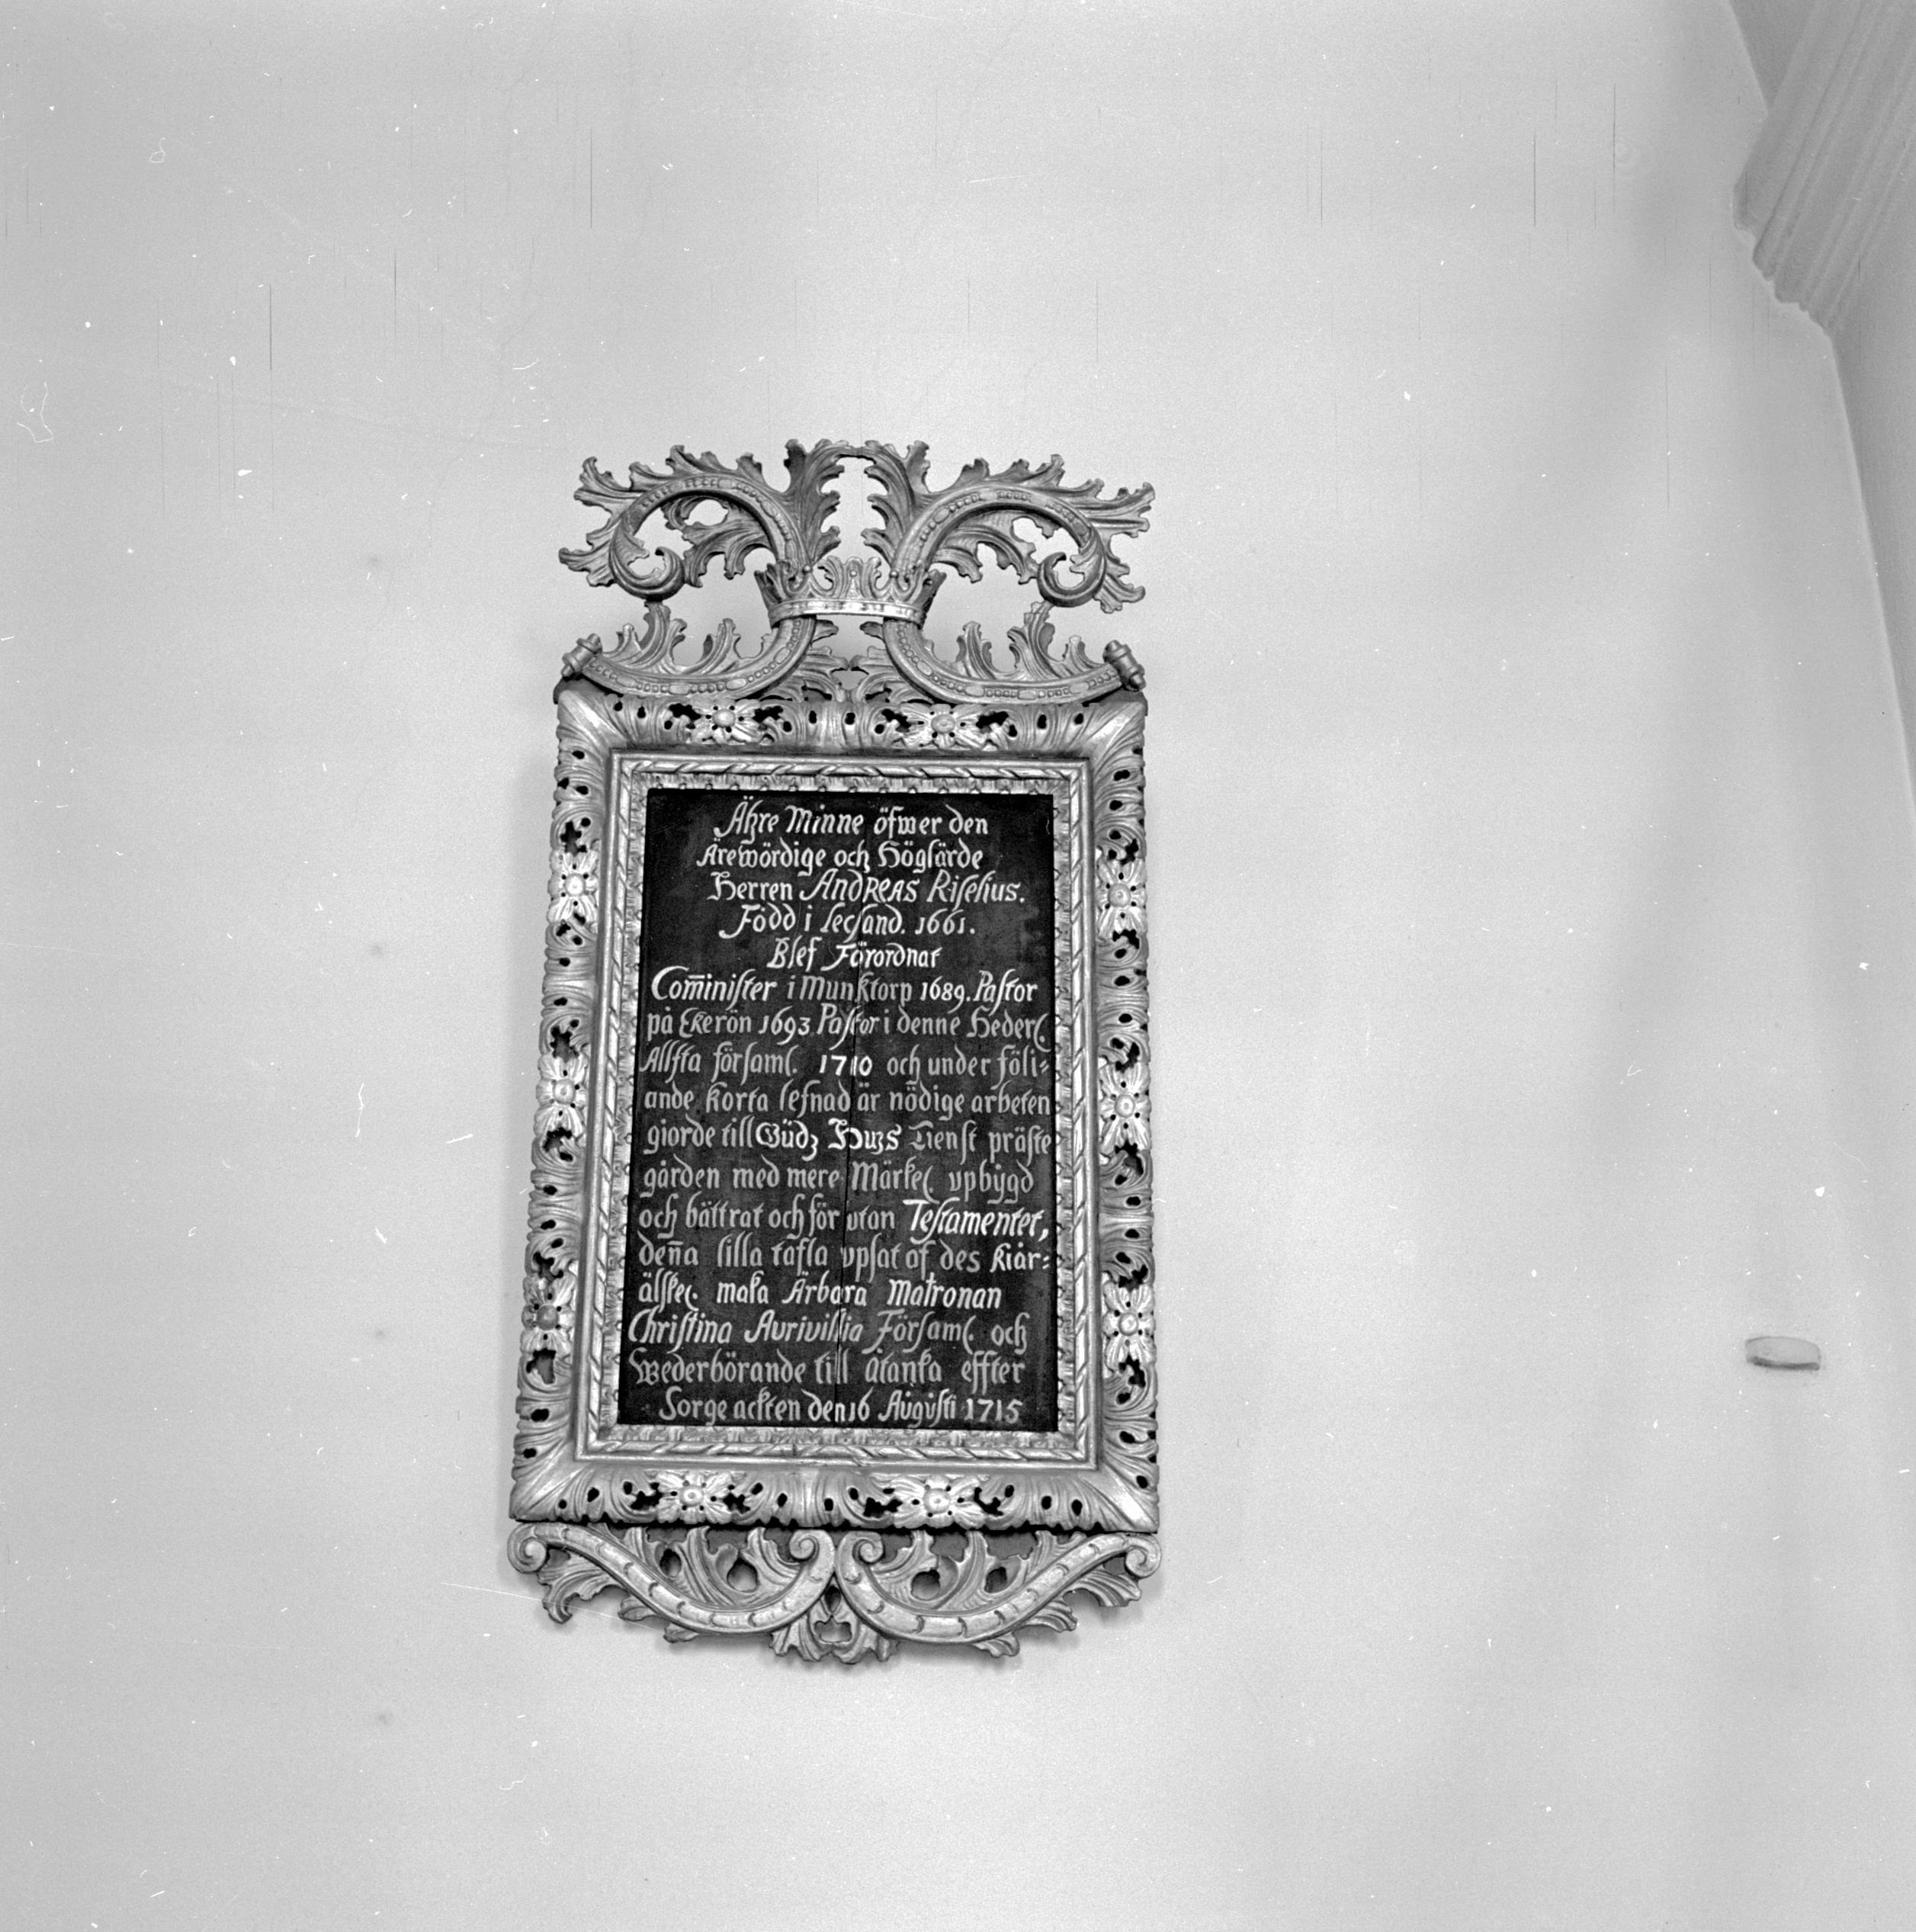 Ähre Minne öfwer den
Ärewördige och Höglärde
Herren ANDREAS Riselius.
Född i lecsand. 1661.
Blef Förordnat
Com̅inister i Munktorp 1689. Pastor
på Ekerön 1693 Pastor i denne Hederl.
Allfta församl. 1710 och under föli⸗
ande korta lefnad är nödige arbeten
giorde till Güdz Huzs Tienst präste
gården med mere Märkel upbÿgd
och bättrat och för utan Testamentet,
den̅a lilla tafla vpsat af des kiär⸗
älskel. maka Ärbara Matronan
Christina Aurivillia Församl. och
Wederbörande till åtanka effter
Sorge ackten den 16 Augusti 1715